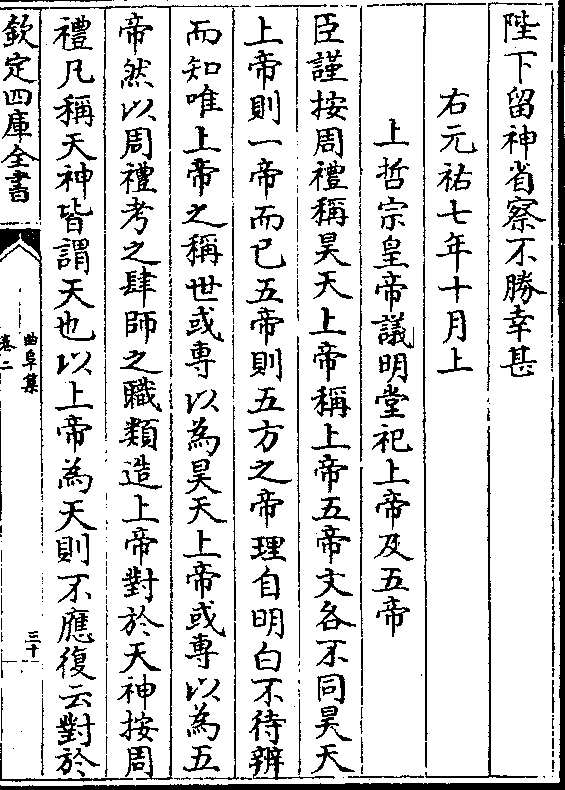 陛下留神省察不勝幸甚
右元祐七年十月上
上哲宗皇帝議明堂祀上帝及五帝
臣謹按周禮稱昊天上帝稱上帝五帝文各不同昊天
上帝則一帝而已五帝則五方之帝理自明白不待辨
而知唯上帝之稱世或專以為昊天上帝或專以為五
帝然以周禮考之肆師之職類造上帝對於天神按周
禮凡稱天神皆謂天也以上帝為天則不應復云對於
欽定四庫全書
曲阜集
卷二
三十